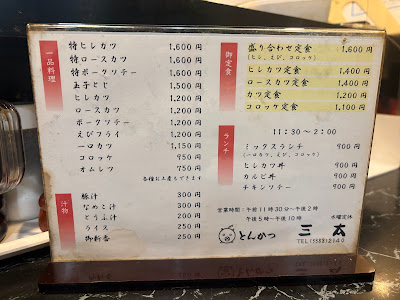 一品料理
特ヒレカツ 1,600円
特ロースカツ 1,600円
特ポークソテー 1,600円
玉子とじ 1,500円
ヒレカツ 1,200円
ロースカツ 1,200円
ポークソテー 1,200円
えびフライ 1,200円
一口カツ 1,150円
コロッケ 950円
オムレツ 750円
各種お土産もできます
汁物
豚汁 300円
なめこ汁 300円
とうふ汁 200円
ライス 250円
御新香 250円
御定食
盛り合わせ定食 1,600円
(ヒレ、えび、コロッケ)
ヒレカツ定食 1,400円
ロースカツ定食 1,400円
カツ定食 1,200円
コロッケ定食 1,100円
ランチ
11:30~2:00
ミックスランチ 900円
(一口カツ、えび、コロッケ)
ヒレカツ丼 900円
カルビ丼 900円
チキンソテー 900円
営業時間:午前11時30分~午後2時
午後5時~午後10時
水曜定休
とんかつ 三太
TEL(3588)2140